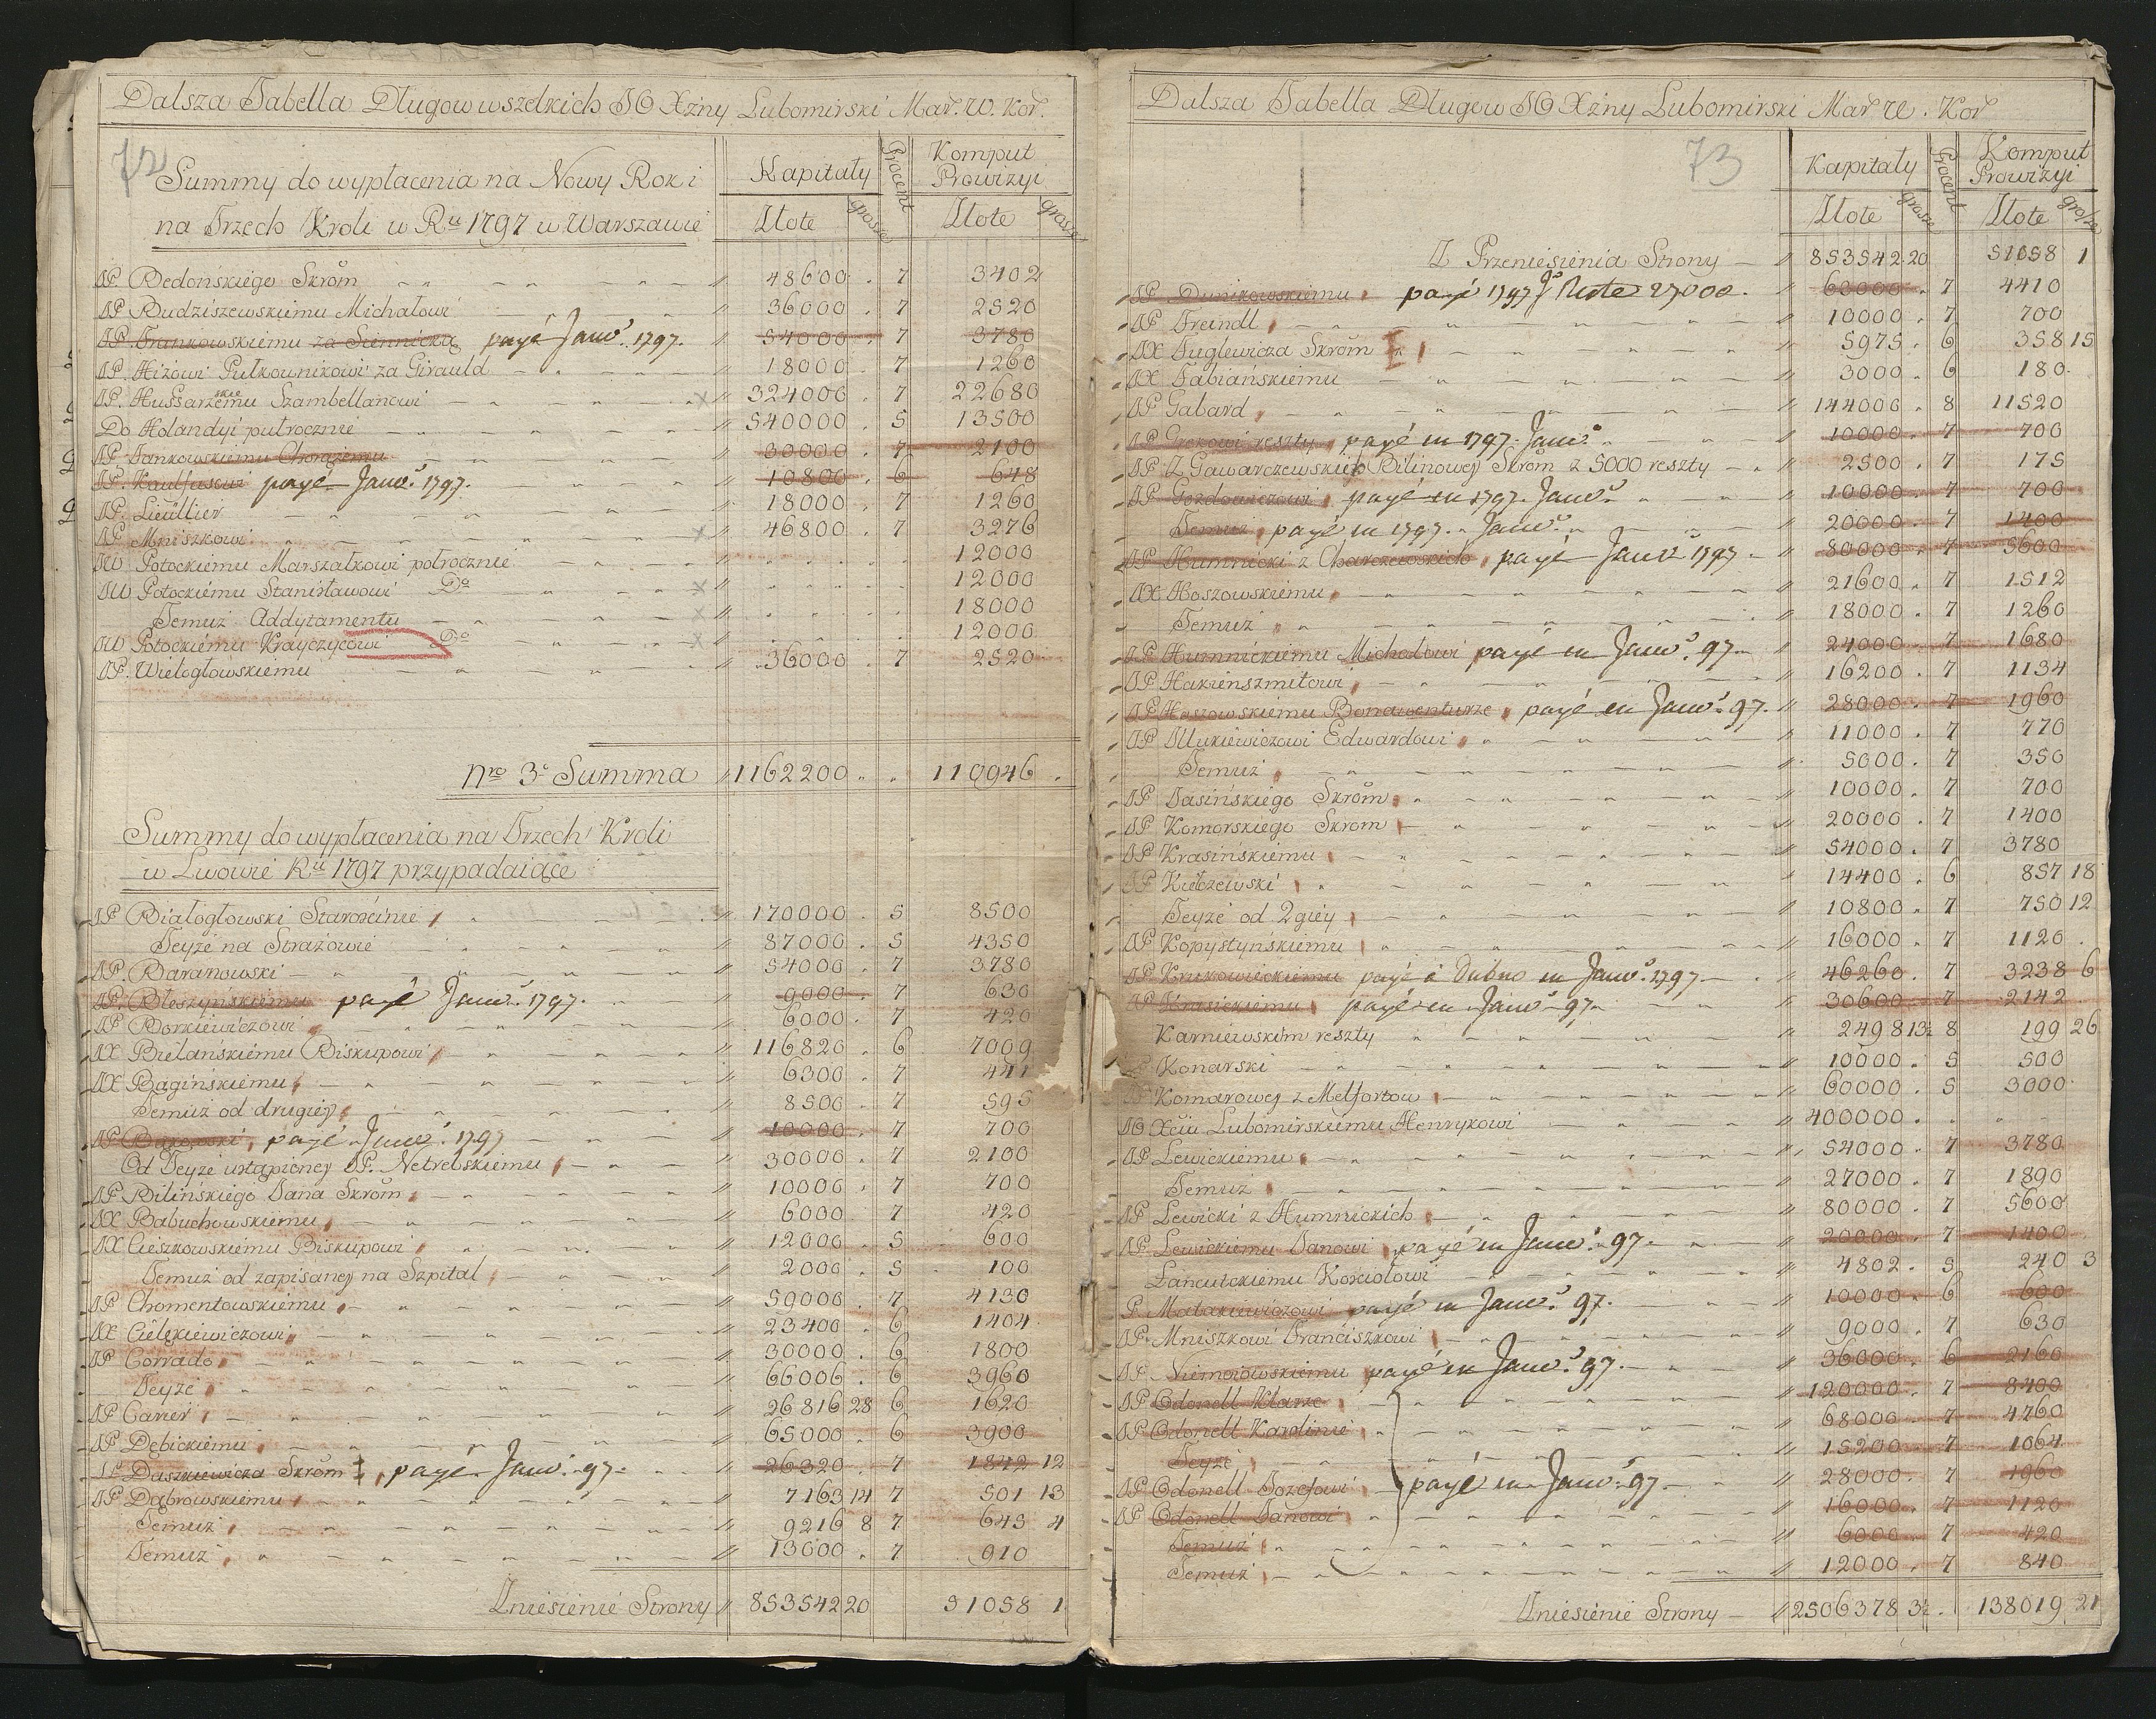 Dalsza Tabella Długow wszelkich JO Xżny Lubomirski Mar. W. Kor.
72
Summy do wypłacenia na Nowy Rok i
na Trzech Kroli w Ru 1797 w Warszawie
Kapitały Procent Komput Prowizyi
Złote grosze Złote grosze
JP. Bedońskiego Skrom 48600 . 7 3402
JP Budziszewskiemu Michałowi 36000 . 7 2520
JP. Frankowskiemu za Siennicką payé Janv. 1797. 54000 . 7 3780
JP. Hiżowi Pułkownikowi za Girauld 18000 . 7 1260
JP. Hussarzewskiemu Szambellanowi 324000 . 7 22680
Do Holandyi pułrocznie 540000 . 5 13500
JP Jankowskiemu Chorążemu 30000 . 7 2100
JP. Kaulfusowi payé Janv. 1797. 10800 . 6 648
JP. Lieullier 18000 . 7 1260
JP Mniszkowi 46800 . 7 3276
JW Potockiemu Marszałkowi połrocznie 12000
JW Potockiemu Stanisławowi Do 12000
Temuż Addytamentu 18000
JW Potockiemu Krayczycowi Do 12000
JP. Wielogłowskiemu 36000 . 7 2520
Nro 3o Summa 1162200 . . 110946 .
Summy do wypłacenia na Trzech Kroli
w Lwowie Ru 1797 przypadaiące
JP Białogłowski Starościnie 170000 . 5 8500
Teyże na Strażowie 87000 . 5 4350
JP. Baranowski 54000 . 7 3780
JP. Błeszyńskiemu payé Janv. 1797. 9000 . 7 630
JP Borkiewiczowi 6000 . 7 420
JX Bielańskiemu Biskupowi 116820 . 6 7009
JX Bagińskiemu 6300 . 7 441
Temuż od drugiey 8500 . 7 595
JP payé Janv. 1797 10000 . 7 700
Od Teyże ustąpioney JP. Netrebskiemu 30000 . 7 2100
JP Bilińskiego Jana Skrom 10000 . 7 700
JX Babuchowskiemu 6000 7 420
JX Cieszkowskiemu Biskupowi 12000 . 5 600
Temuż od zapisaney na Szpital 2000 . 5 100
JP Chomentowskiemu 59000 . 7 4130
JX Cielękiewiczowi 23400 . 6 1404
JP Corrado 30000 . 6 1800
Teyże 66006 . 6 3960
JP Carier 26816 28 6 1620
JP Dębickiemu 65000 . 6 3900
JP Daszkiewicza Skrom payé Janv. 97. 26320 . 7 1842 12
JP Dąbrowskiemu 7163 14 7 501 13
Temuż 9216 8 7 645 4
Temuż 13000 . 7 910
Zniesienie Strony 853542 20 51058 1
Dalsza Tabella Długow JO Xżny Lubomirski Mar W. Kor
73
Kapitały Procent Komput Prowizyi
Złote grosze Złote grosze
Z Przeniesienia Strony 853542 20 51058 1
JP Dunikowskiemu payé 1797 Reste 27000. 63000 . 7 4410
JP Freindl 10000 . 7 700
JX Fuglewicza Skrom 5975 . 6 358 15
JX Fabiańskiemu 3000 . 6 180.
JP Gabard 144000 . 8 11520
JP Grekowi reszty payé in 1797. Janv. 10000 . 7 700
JP Z Gawarczewskich Bilinowey Skrom z 5000 reszty 2500 . 7 175
JP Gozdowiczowi payé in 1797. Janv. 10000 . 7 700
Temuż payé in 1797. Janv. 20000 . 7 1400
JP Humnicki z Charczewskich payé Janv 1797 80000 . 7 5600
JX Hoszowskiemu 21600 . 7 1512
Temuż 18000 . 7 1260
JP Humnickiemu Michałowi payé in Janv. 97. 24000 . 7 1680
JP Hakienszmitowi 16200 . 7 1134
JP Hoszowskiemu Bonawenturze payé en Janv. 97. 28000 . 7 1960
JP Edwardowi 11000 . 7 770
Temuż 5000 . 7 350
JP Jasińskiego Skrom 10000 . 7 700
JP Komorskiego Skrom 20000 . 7 1400
JP Krasińskiemu 54000 . 7 3780
JP Kiełczewski 14400 . 6 857 18
Teyże od 2giey 10800 . 7 750 12
JP Kopystyńskiemu 16000 . 7 1120 .
JP Krukowieckiemu payé à Dubno in Janv. 1797 46260 . 7 3238 6
JP Krasickiemu payé en Janv 97. 30600 . 7 2142
Karniewskim reszty 2498 13½ 8 199 26
JP Konarski 10000 . 5 500
JP Komarowey z Melfortow 60000 . 5 3000
JO Xciu Lubomirskiemu Henrykowi 400000 . .
JP Lewickiemu 54000 . 7 3780
Temuż 27000 . 7 1890
JP Lewicki z Humnickich 80000 . 7 5600
JP Lewickiemu Janowi payé in Janv. 97. 20000 . 7 1400
Łancutckiemu Kościołowi 4802 . 5 240 3
P. Małakiewiczowi payé in Janv. 97. 10000 . 6 600
JP. Mniszkowi Franciszkowi 9000 . 7 630
JP Niemoiowskiemu payé in Janv. 97. 36000 . 6 2160
JP Odonell Klarze 120000 . 7 8400
JP Odonell Karolinie 68000 . 7 4760
Teyże 15200 . 7 1064
JP Odonell Jozefowi payé in Janv. 97. 28000 . 7 1960
JP Odonell Janowi 16000 . 7 1120
Temuż 6000 . 7 420
Temuż 12000 . 7 840
Zniesienie Strony 2506378 3½ . 138019 21